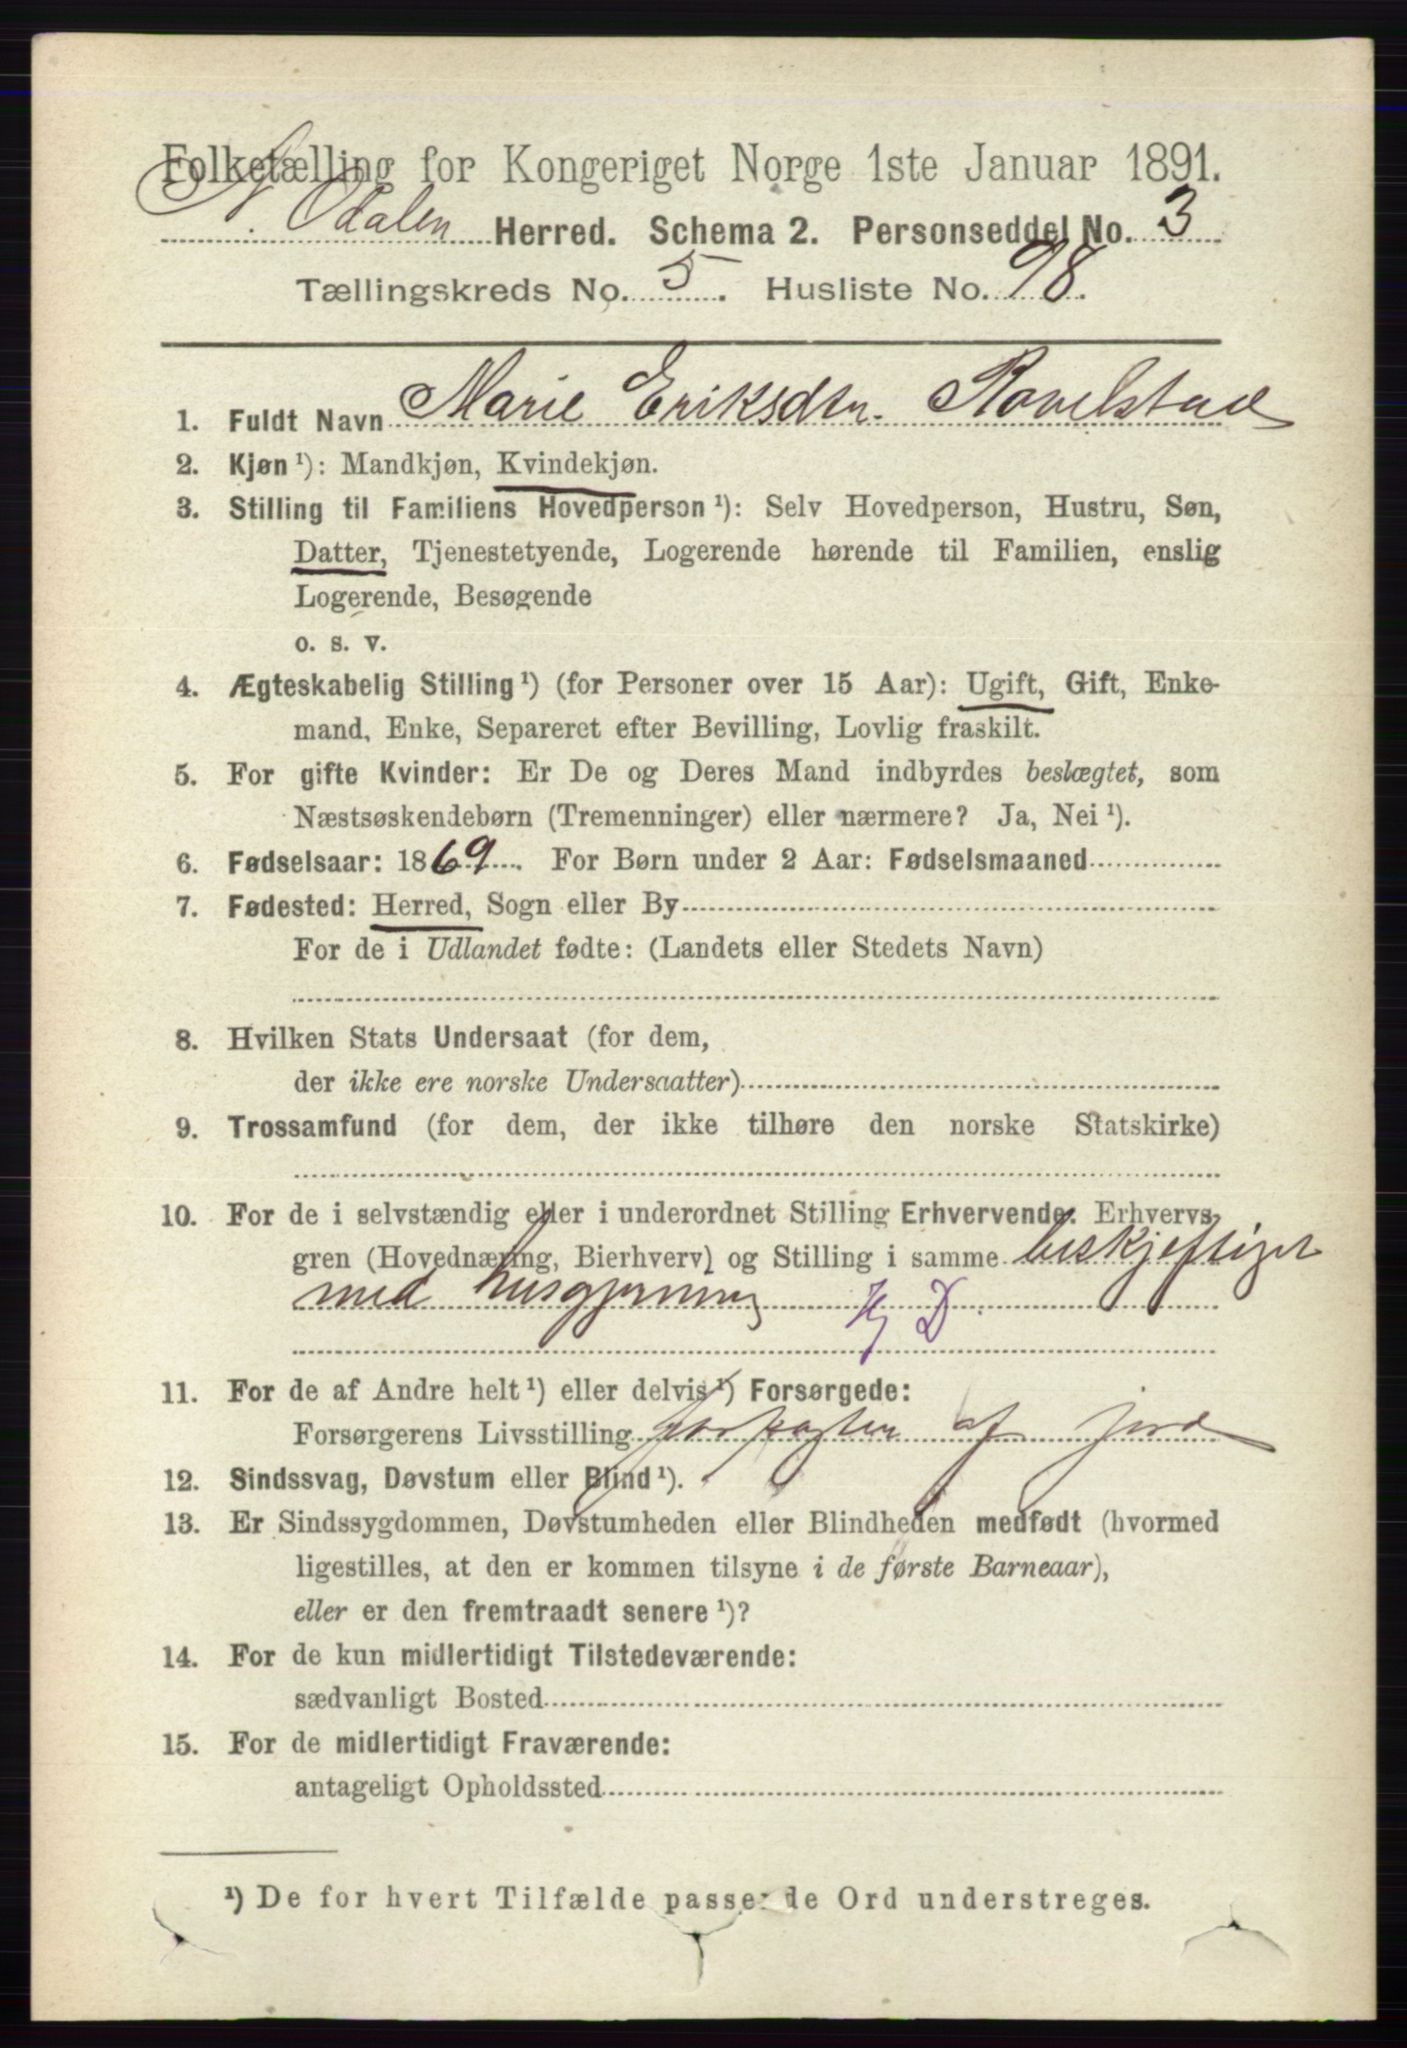 Folketælling for Kongeriget Norge 1ste Januar 1891.
N. Odalen Herred. Schema 2. Personseddel No. 3
Tællingskreds No. 5. Husliste No. 98.
1. Fuldt Navn Marie Eriksdtr. Rovelstad
2. Kjøn ¹): Mandkjøn, Kvindekjøn.
3. Stilling til Familiens Hovedperson ¹): Selv Hovedperson, Hustru, Søn,
Datter, Tjenestetyende, Logerende hørende til Familien, enslig
Logerende, Besøgende
o. s. v.
4. Ægteskabelig Stilling ¹) (for Personer over 15 Aar): Ugift, Gift, Enke-
mand, Enke, Separeret efter Bevilling, Lovlig fraskilt.
5. For gifte Kvinder: Er De og Deres Mand indbyrdes beslægtet, som
Næstsøskendebørn (Tremenninger) eller nærmere? Ja, Nei ¹).
6. Fødselsaar: 1869. For Børn under 2 Aar: Fødselsmaaned
7. Fødested: Herred, Sogn eller By
For de i Udlandet fødte: (Landets eller Stedets Navn)
8. Hvilken Stats Undersaat (for dem,
der ikke ere norske Undersaatter)
9. Trossamfund (for dem, der ikke tilhøre den norske Statskirke)
10. For de i selvstændig eller i underordnet Stilling Erhvervende: Erhvervs-
gren (Hovednæring, Bierhverv) og Stilling i samme beskjeftiget
med husgjerning Hj D.
11. For de af Andre helt ¹) eller delvis ¹) Forsørgede:
Forsørgerens Livsstilling forpagter af jord
12. Sindssvag, Døvstum eller Blind ¹).
13. Er Sindssygdommen, Døvstumheden eller Blindheden medfødt (hvormed
ligestilles, at den er kommen tilsyne i de første Barneaar),
eller er den fremtraadt senere ¹)?
14. For de kun midlertidigt Tilstedeværende:
sædvanligt Bosted
15. For de midlertidigt Fraværende:
antageligt Opholdssted
¹) De for hvert Tilfælde passende Ord understreges.